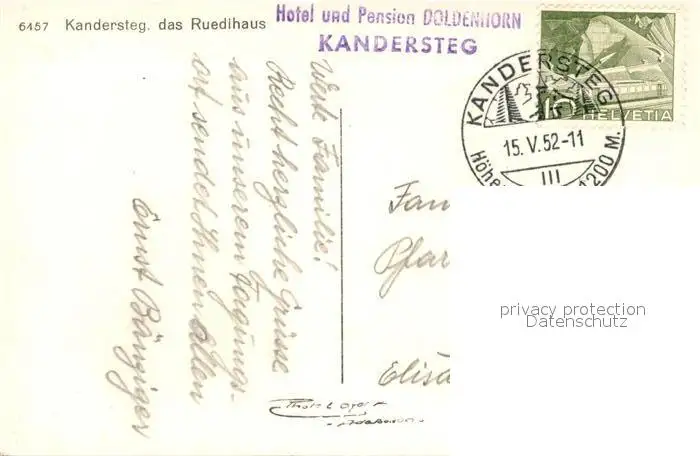 6457 Kandersteg. das Ruedihaus
Hotel und Pension DOLDENHORN
KANDERSTEG
KANDERSTEG
15.V.52-11
III
Höhe 1200 M.
10
HELVETIA
Werte Familie!
Recht herzliche Grüsse
aus unserem Tagungs-
ort sendet Ihnen allen
Ernst Bänziger
Fam
Pfar
Elisa
privacy protection
Datenschutz